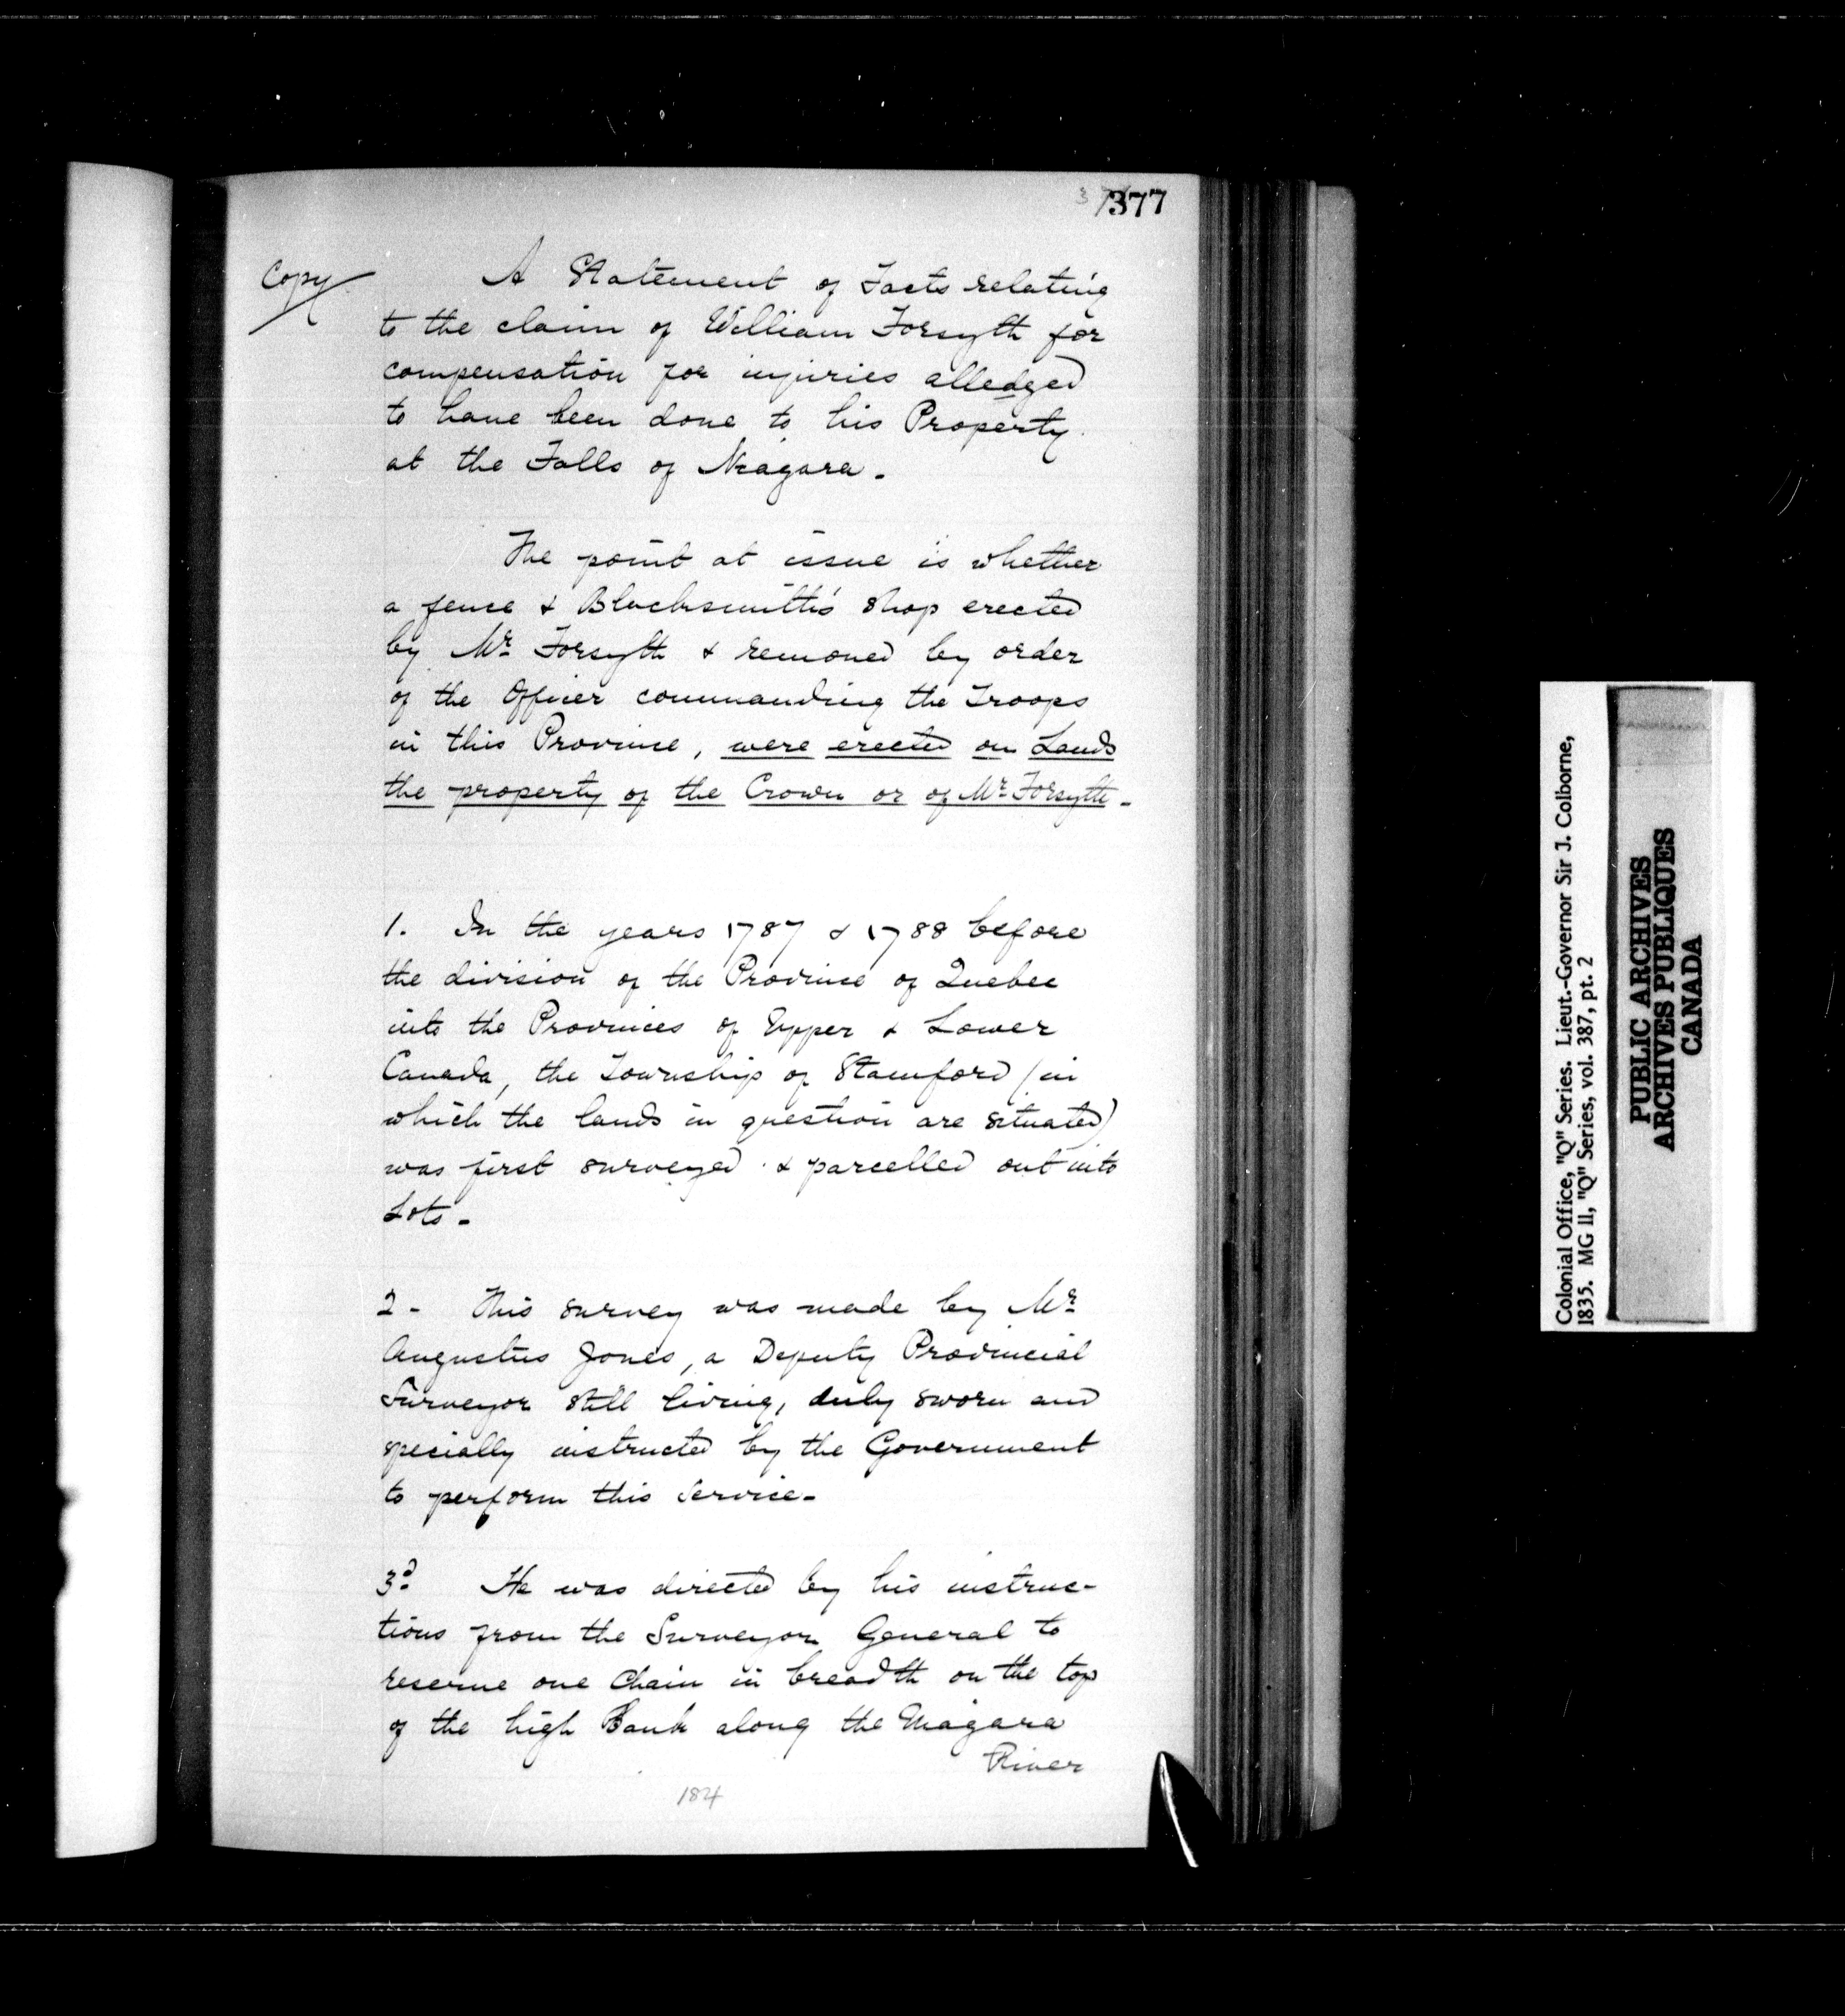 377
Copy
A Statement of Facts relating
to the claim of William Forsyth for
compensation for injuries alledged
to have been done to his Property
at the Falls of Niagara.
The point at issue is whether
a fence & Blacksmith's shop erected
by Mr Forsyth & removed by order
of the Officer commanding the Troops
in this Province, were erected on Lands
the property of the Crown or of Mr Forsyth.
1. In the years 1787 & 1788 before
the division of the Province of Quebec
into the Provinces of Upper & Lower
Canada, the Township of Stamford (in
which the lands in question are situated)
was first surveyed & parcelled out into
Lots.
2- This survey was made by Mr
Augustus Jones, a Deputy Provincial
Surveyor still living, duly sworn and
specially instructed by the Government
to perform this Service-
3d He was directed by his instruc-
tions from the Surveyor General to
reserve one Chain in breadth on the top
of the high Bank along the Niagara
River
184
Colonial Office, "Q" Series. Lieut.-Governor Sir J. Colborne,
1835. MG 11, "Q" Series, vol. 387, pt. 2
PUBLIC ARCHIVES
ARCHIVES PUBLIQUES
CANADA